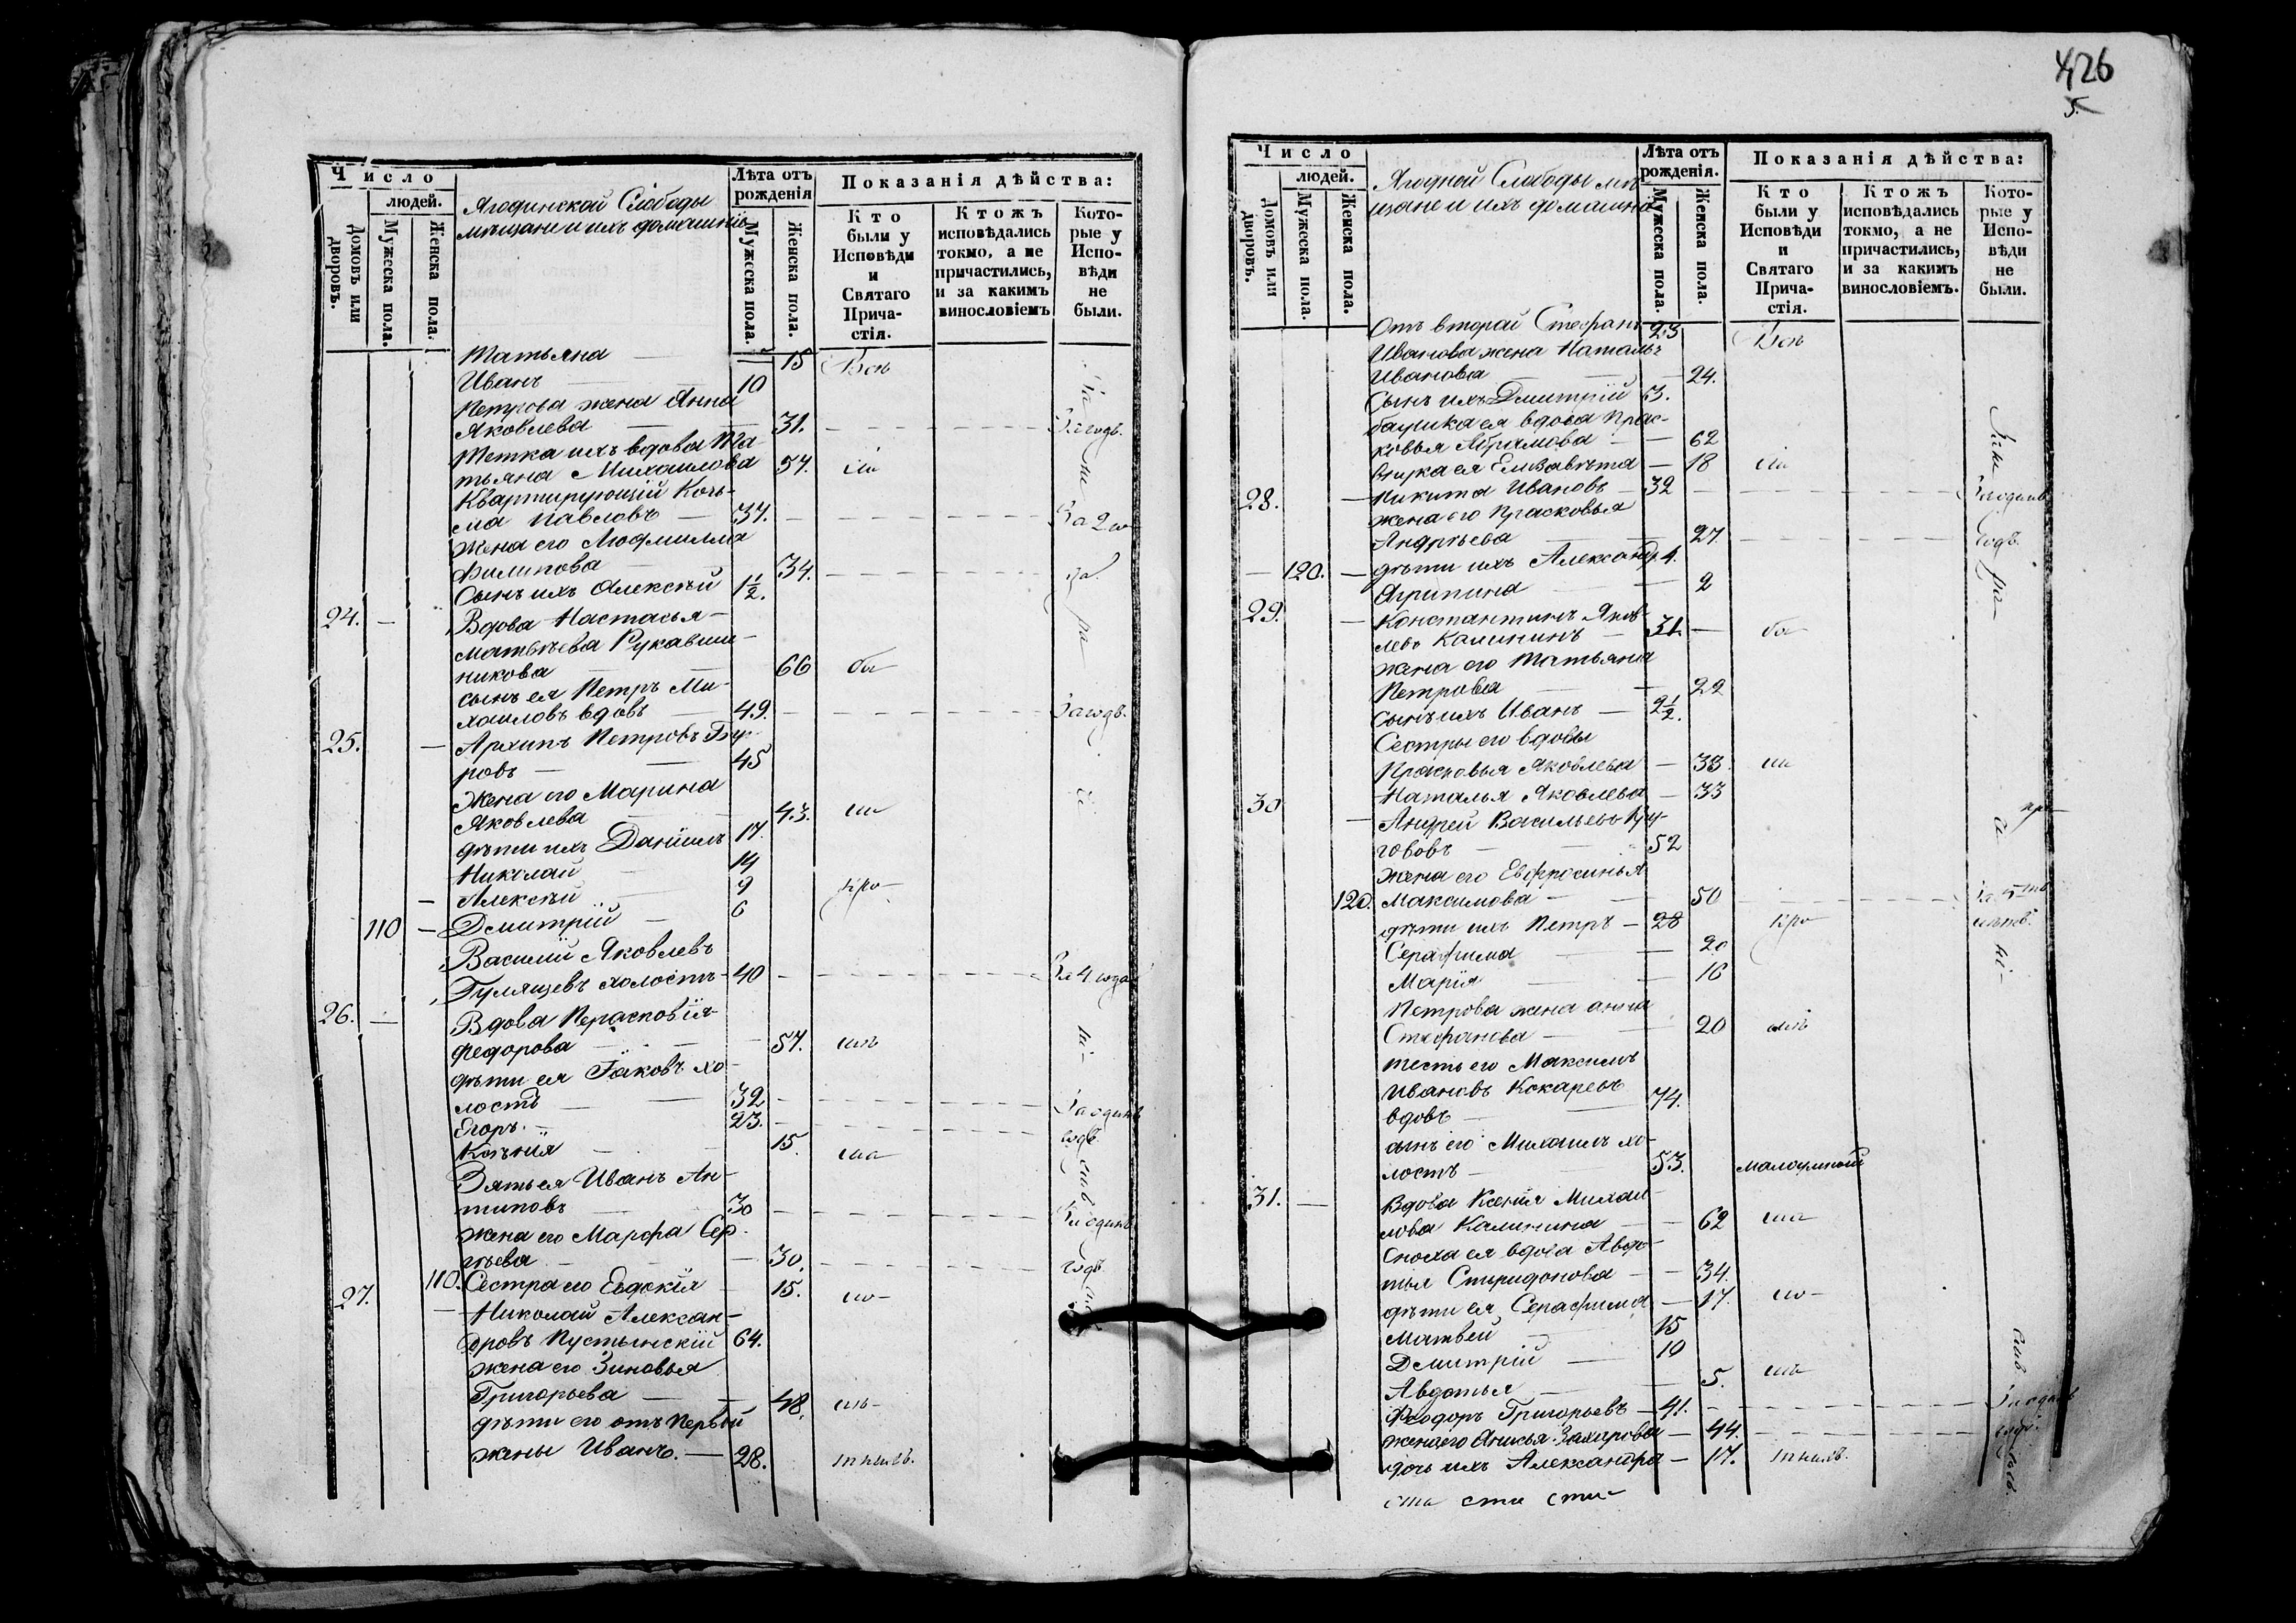 426
5.
Число
людей.
Домовъ или дворовъ.
Мужеска пола.
Женска пола.
Ягодинской Слободы
мѣщане и ихъ домашніе
Лѣта отъ рожденія
Мужеска пола.
Женска пола.
Показанія дѣйства:
Кто были у Исповѣди и Святаго Прича-стія.
Ктожъ исповѣдались токмо, а не причастились, и за какимъ винословіемъ
Кото-рые у Испо-вѣди не были.
Татьяна — 15 Всѣ
Иванъ — 10
Петрова жена Анна
Яковлева — 31. За годъ.
Тетка ихъ вдова Та-
тьяна Михаилова 54.
Квартирующій Козь-
ма Павловъ — 37. За 2 го
жена его Людмилла
Филипова — 34. да.
Сынъ ихъ Алексѣй 1 1/2.
24. — Вдова Настасья
Матвѣева Рукавиш-
никова — 66 бы
сынъ ея Петръ Ми-
хаиловъ вдовъ — 49. За годъ.
25. — Архипъ Петровъ Бу-
ровъ — 45
Жена его Марина
Яковлева — 43. ли
дѣти ихъ Даніилъ 17.
Николай 14
Алексѣй — 9 кро-
110 — Дмитрій — 6
Василій Яковлевъ
Гулящевъ холостъ — 40 За 4 года
26. — Вдова Перасковія
Федорова — 57. мѣ
дѣти ея Іаковъ хо-
лостъ — 32 За одинъ
Егоръ. — 23. годъ
Ксенія — 15. ма
Зять ея Иванъ Ан-
типовъ — 30 За одинъ
жена его Марфа Сер-
гѣева — 30. годъ
110. Сестра его Евдокія 15. ло-
27. — Николай Алексан-
дровъ Пустынскій 64.
жена его Зиновья
Григорьева — 48. лѣ-
дѣти его отъ первой
жены Иванъ. — 28. тнихъ.
Число
людей.
Домовъ или дворовъ.
Мужеска пола.
Женска пола.
Ягодной Слободы мѣ
щане и ихъ домашніе
Лѣта отъ рожденія.
Мужеска пола.
Женска пола.
Показанія дѣйства:
Кто были у Исповѣди и Святаго Прича-стія.
Ктожъ исповѣдались токмо, а не причастились, и за какимъ винословіемъ.
Кото-рые у Испо-вѣди не были.
Отъ второй Стефанъ 23 Всѣ
Иванова жена Наталья
Иванова — 24.
Сынъ ихъ Дмитрій 3.
бабушка ея вдова Прас-
ковья Абрамова — 62
внука ея Елизавѣта — 18
28. — Никита Ивановъ — 32 За одинъ
жена его Прасковья
Андрѣева — 27 годъ.
120. — дѣти ихъ Александръ 4.
Агрипина — 2
29. — Константинъ Яков-
левъ Калининъ — 31. — бы
жена его Татьяна
Петрова — 22
сынъ ихъ Иванъ — 2 1/2.
Сестры его вдовы
Прасковья Яковлева — 38 ли
Наталья Яковлева — 33
30 — Андрей Васильевъ Кру-
говъ — 52
жена его Евфросинья
120. Максимова — 50
дѣти ихъ Петръ — 28 кро
Серафима — 20
Марія — 16
Петрова жена Анна
Стефанова — 20 мѣ
тесть его Максимъ
Ивановъ Кокаревъ
вдовъ — 74.
сынъ его Михаилъ хо-
лостъ — 53. малоумной
31. — Вдова Ксенія Михаи-
лова Калинина — 62 ма
Сноха ея вдова Авдо-
тья Спиридонова — 34.
дѣти ея Серафима — 17. ло-
Матвей 15
Дмитрій — 10
Авдотья — 5. лѣ
Феодоръ Григорьевъ — 41. За одинъ
жена его Анисья Захарова — 44. годъ.
дочь ихъ Александра — 17. тнихъ.